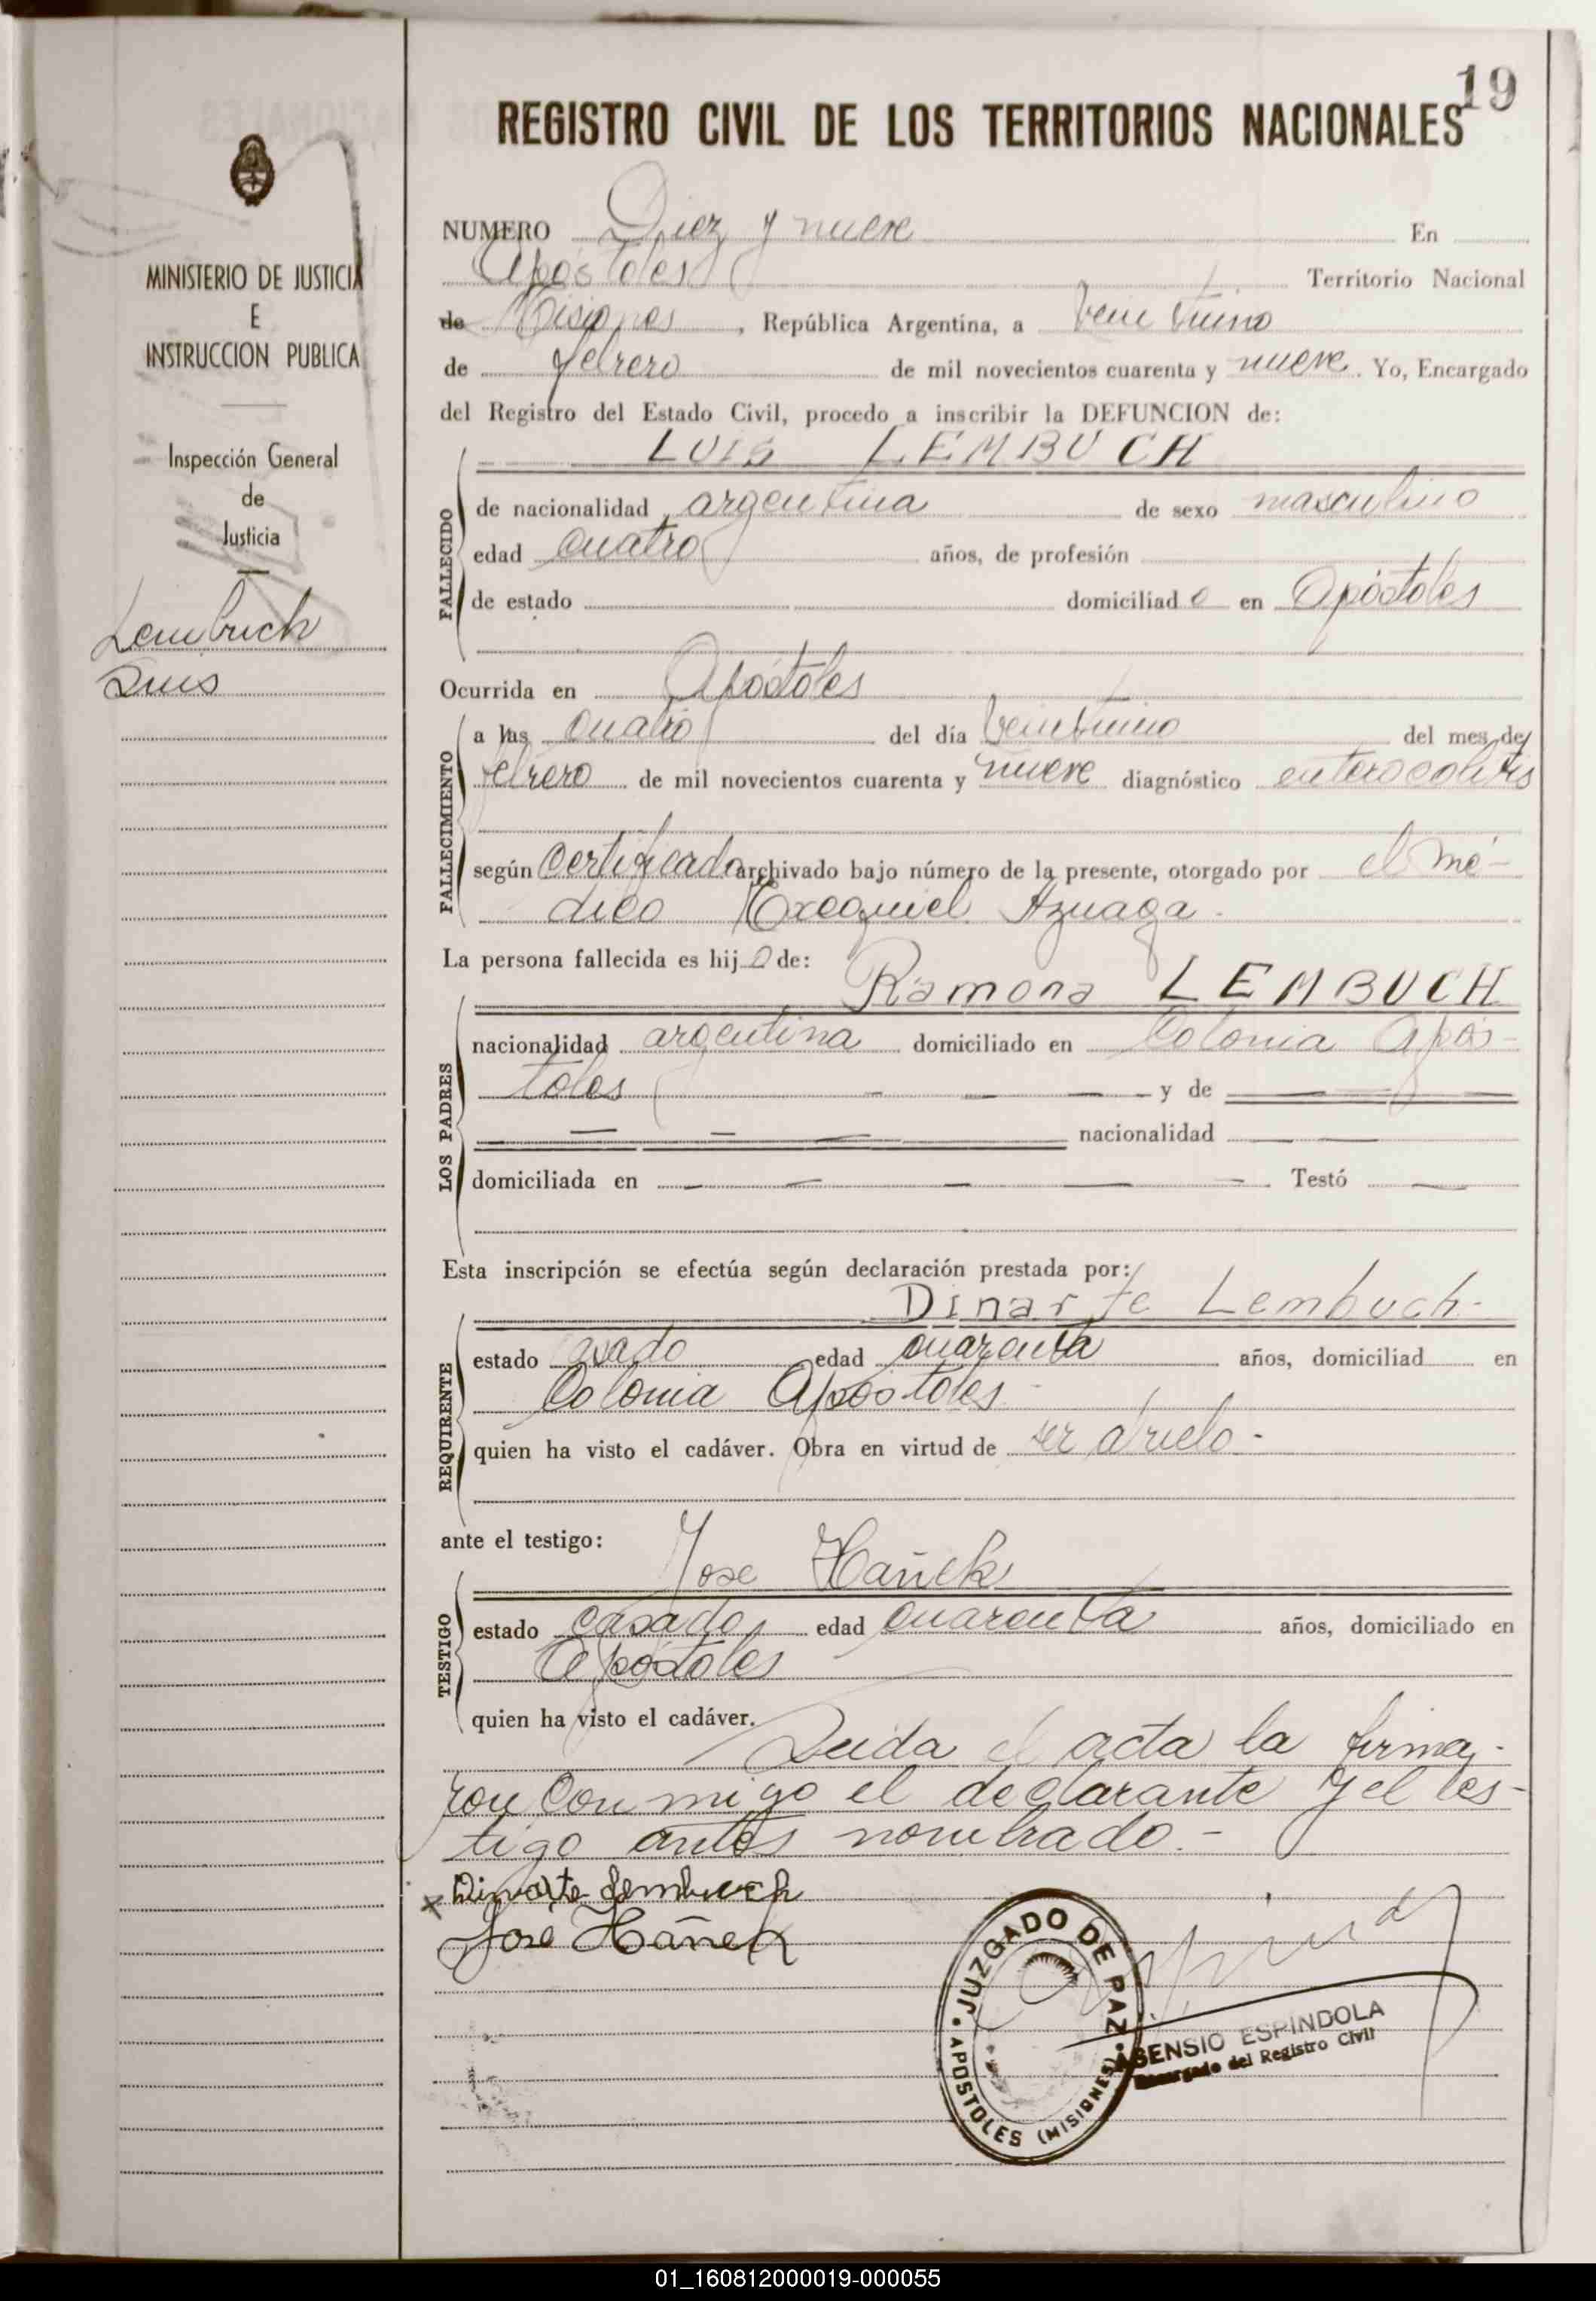 19
REGISTRO CIVIL DE LOS TERRITORIOS NACIONALES
MINISTERIO DE JUSTICIA
E
INSTRUCCION PUBLICA
Inspección General
de
Justicia
Lembuch
Luis
NUMERO Diez y nueve En
Apóstoles Territorio Nacional
de Misiones, República Argentina, a veintiuno
de febrero de mil novecientos cuarenta y nueve. Yo, Encargado
del Registro del Estado Civil, procedo a inscribir la DEFUNCION de:
LUIS LEMBUCH
FALLECIDO
de nacionalidad argentina de sexo masculino
edad cuatro años, de profesión
de estado domiciliado en Apóstoles
Ocurrida en Apóstoles
FALLECIMIENTO
a las cuatro del día veintiuno del mes de
febrero de mil novecientos cuarenta y nueve diagnóstico enterocolitis
según certificado archivado bajo número de la presente, otorgado por el mé-
dico Exequiel Azuaga.
La persona fallecida es hijo de:
LOS PADRES
Ramona LEMBUCH
nacionalidad argentina domiciliado en Colonia Após-
toles — — — y de — — —
— — — nacionalidad — —
domiciliada en — — — — — Testó —
Esta inscripción se efectúa según declaración prestada por:
REQUIRENTE
Dinarte Lembuch-
estado casado edad cuarenta años, domiciliad en
Colonia Apóstoles-
quien ha visto el cadáver. Obra en virtud de ser abuelo-
ante el testigo:
TESTIGO
Jose Hañek
estado casado edad cuarenta años, domiciliado en
Apóstoles
quien ha visto el cadáver.
Leida el acta la firma-
ron conmigo el declarante y el tes-
tigo antes nombrado.-
x Dinarte Lembuch
José Hañek
JUZGADO DE PAZ
APOSTOLES (MISIONES)
ASENSIO ESPINDOLA
Encargado del Registro Civil
01_160812000019-000055